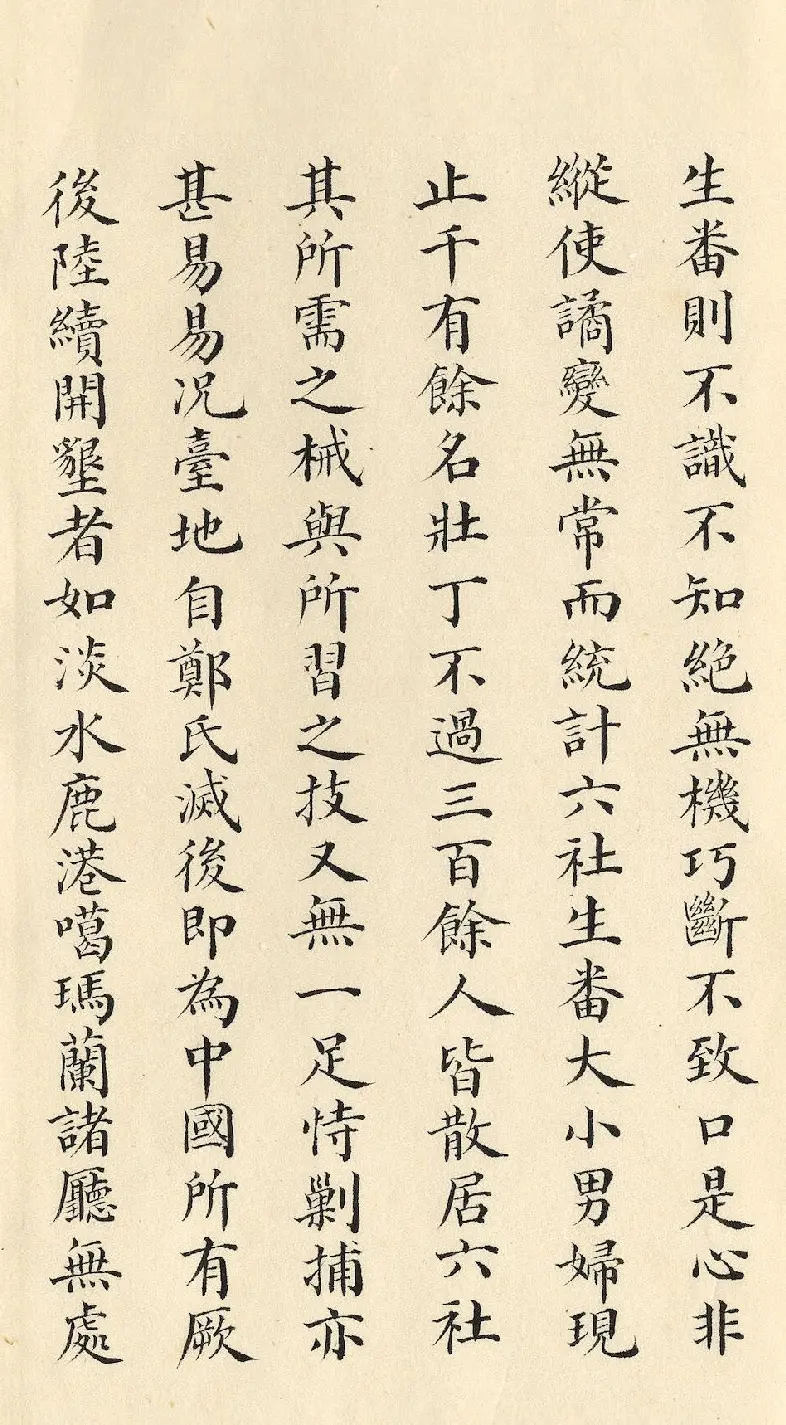 生番則不識不知絶無機巧斷不致口是心非
縱使譎變無常而統計六社生番大小男婦現
止千有餘名壯丁不過三百餘人皆散居六社
其所需之械與所習之技又無一足恃剿捕亦
甚易易况臺地自鄭氏滅後即為中國所有厥
後陸續開墾者如淡水鹿港噶瑪蘭諸廳無處